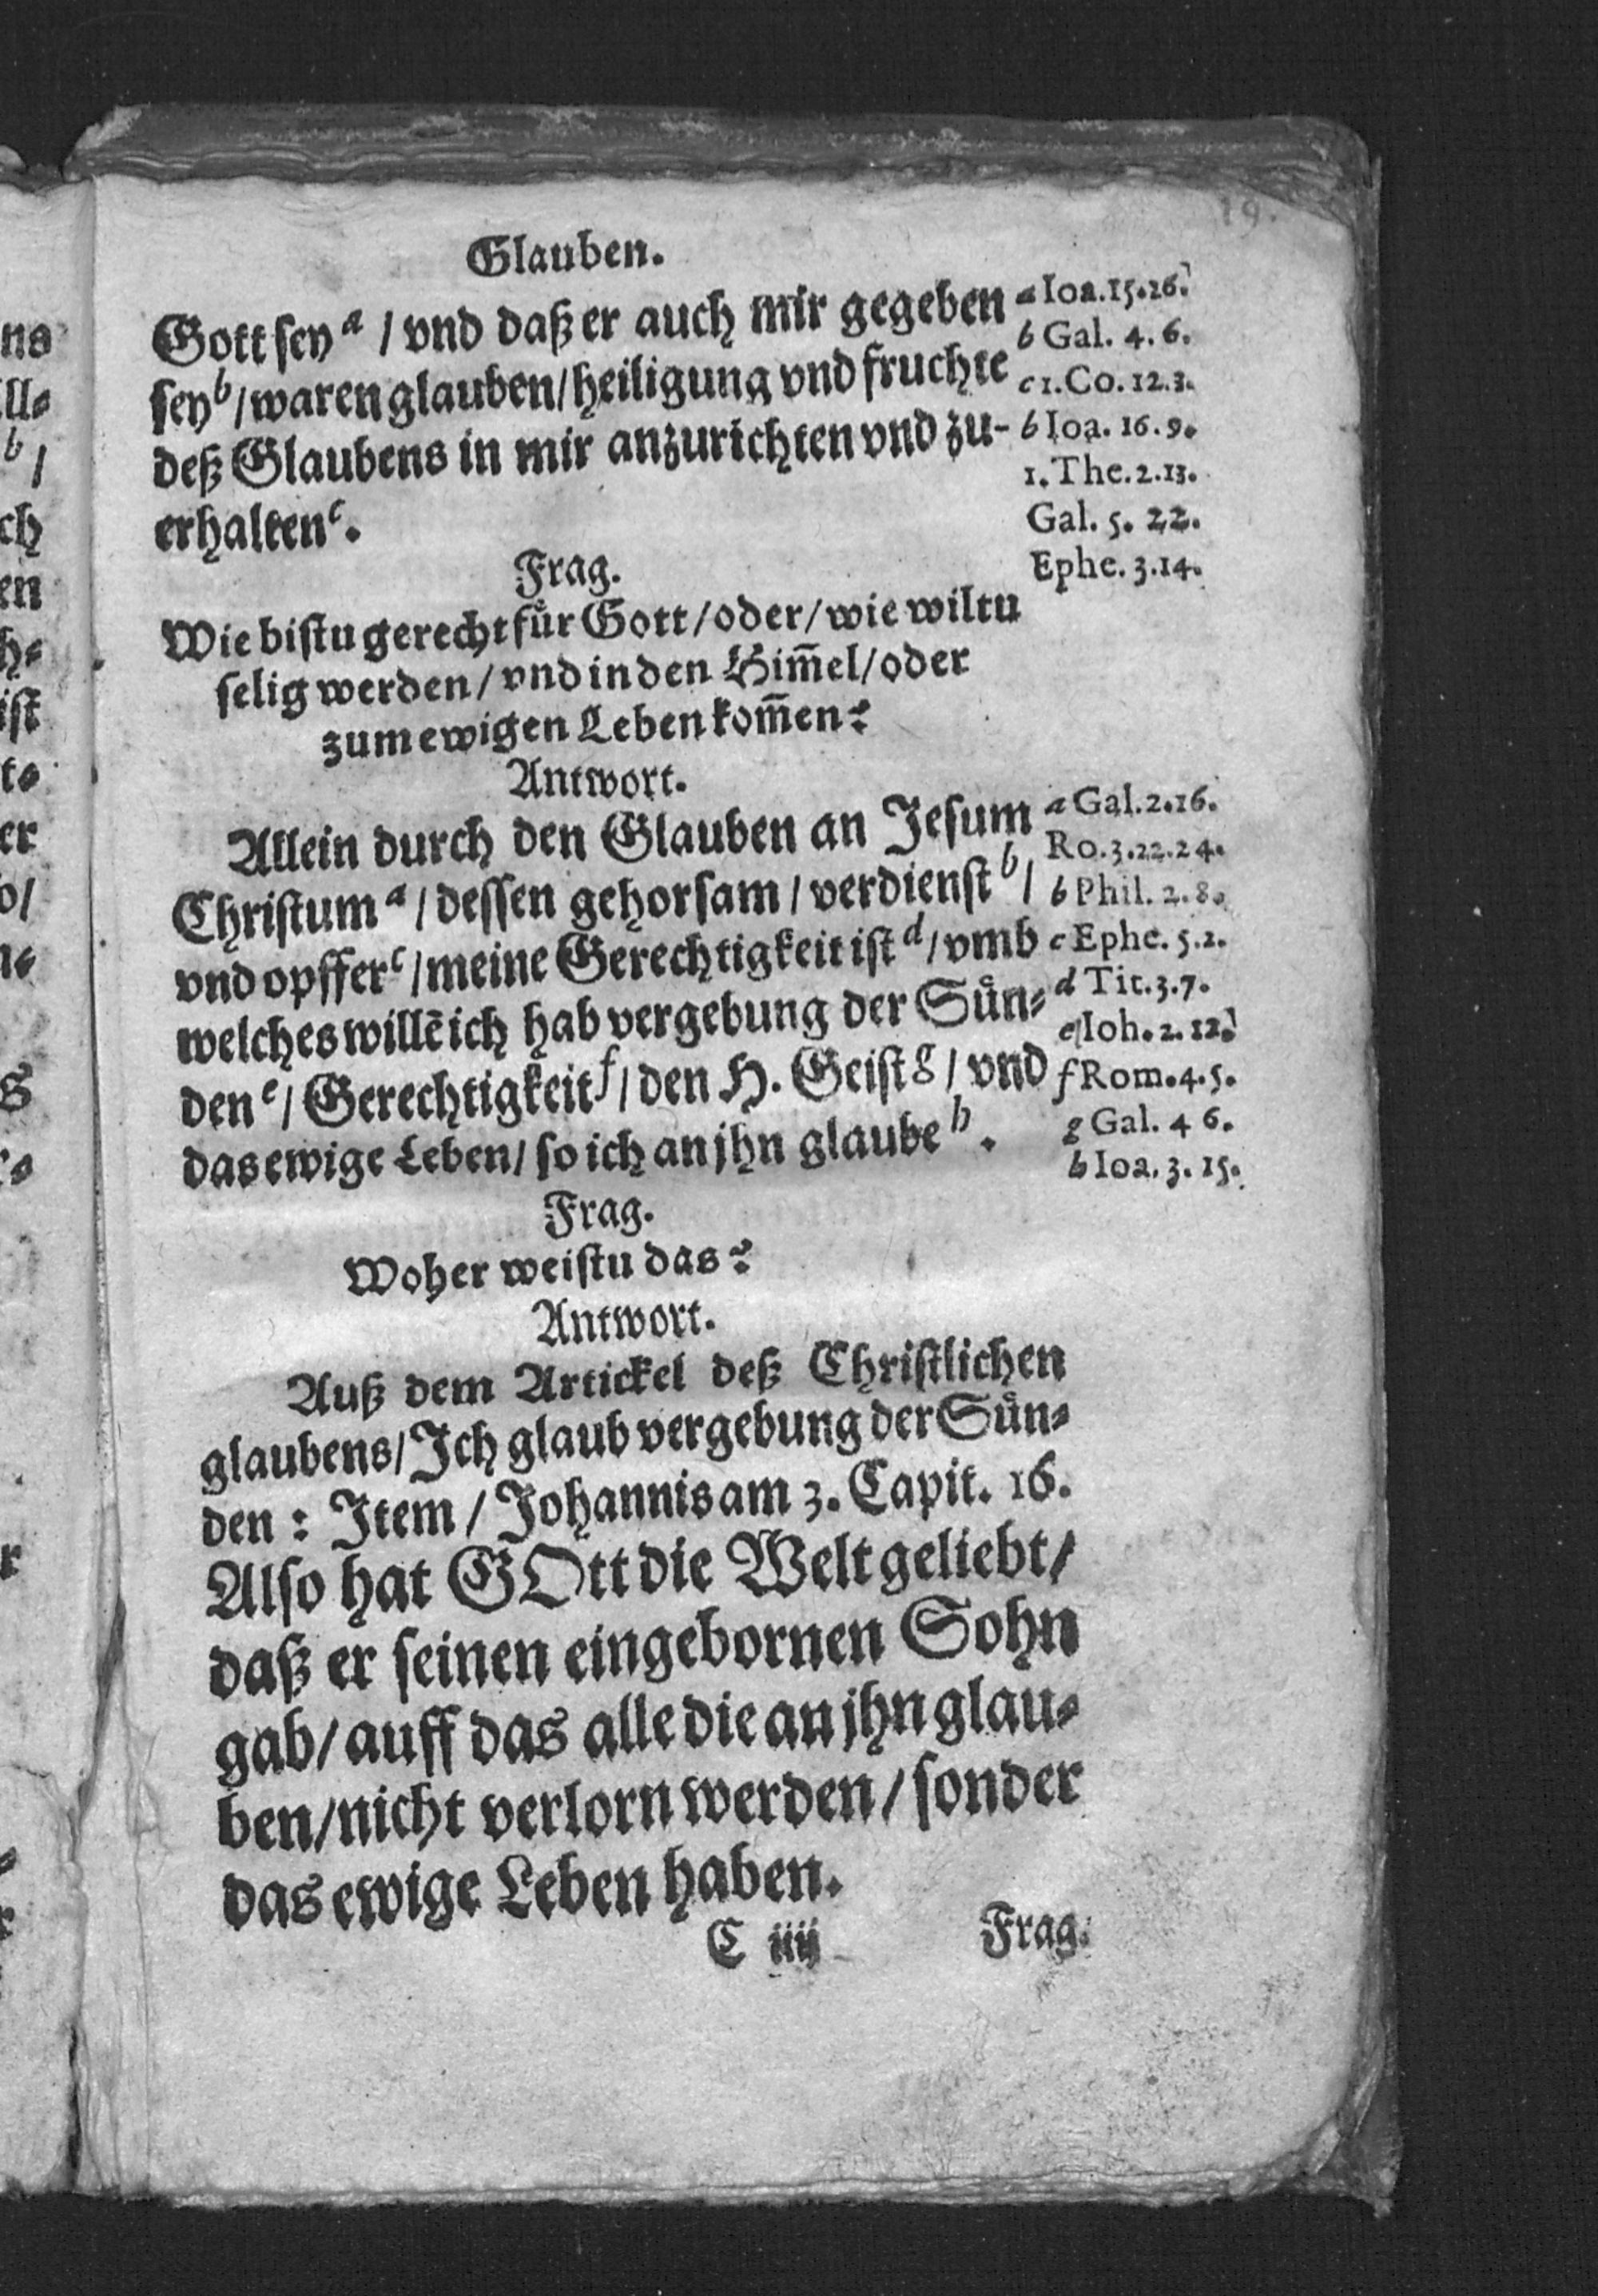 19.
Glauben.
Gott sey a / vnd daß er auch mir gegeben
sey b / waren glauben / heiligung vnd fruchte
deß Glaubens in mir anzurichten vnd zu-
erhalten c.
a Ioa.15.26.
b Gal. 4. 6.
c 1.Co. 12.3.
b Ioa. 16.9.
1.The.2.13.
Gal. 5. 22.
Ephe. 3.14.
Frag.
Wie bistu gerecht fůr Gott / oder / wie wiltu
selig werden / vnd in den Him̃el / oder
zum ewigen Leben kom̃en?
Antwort.
Allein durch den Glauben an Jesum
Christum a / dessen gehorsam / verdienst b /
vnd opffer c / meine Gerechtigkeit ist d / vmb
welches willẽ ich hab vergebung der Sůn-
den e / Gerechtigkeit f / den H. Geist g / vnd
das ewige Leben / so ich an jhn glaube h.
a Gal.2.16.
Ro.3.22.24.
b Phil. 2.8.
c Ephe. 5.2.
d Tit.3.7.
e Ioh. 2. 12.
f Rom.4.5.
g Gal. 4 6.
h Ioa. 3. 15.
Frag.
Woher weistu das?
Antwort.
Auß dem Artickel deß Christlichen
glaubens / Ich glaub vergebung der Sůn-
den : Item / Johannis am 3. Capit. 16.
Also hat GOtt die Welt geliebt /
daß er seinen eingebornen Sohn
gab / auff das alle die an jhn glau-
ben / nicht verlorn werden / sonder
das ewige Leben haben.
C iiij Frag.